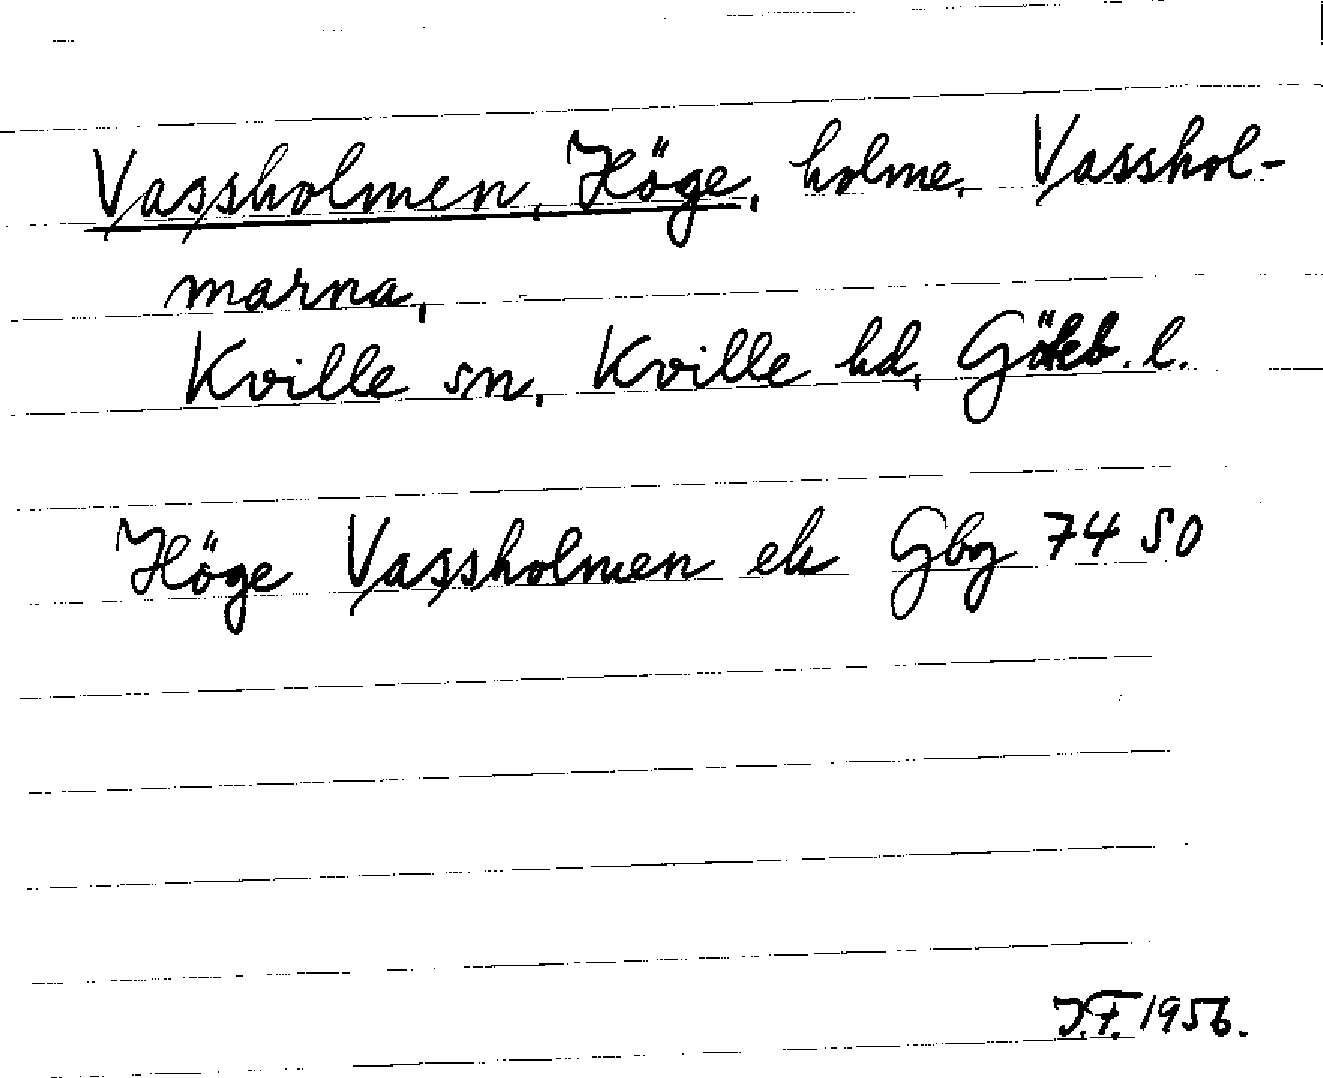 Vassholmen, Höge, holme, Vasshol-
marna,
Kville sn, Kville hd, Göteb. l.
Höge Vassholmen ek Gbg 74 SO
J.F. 1956.